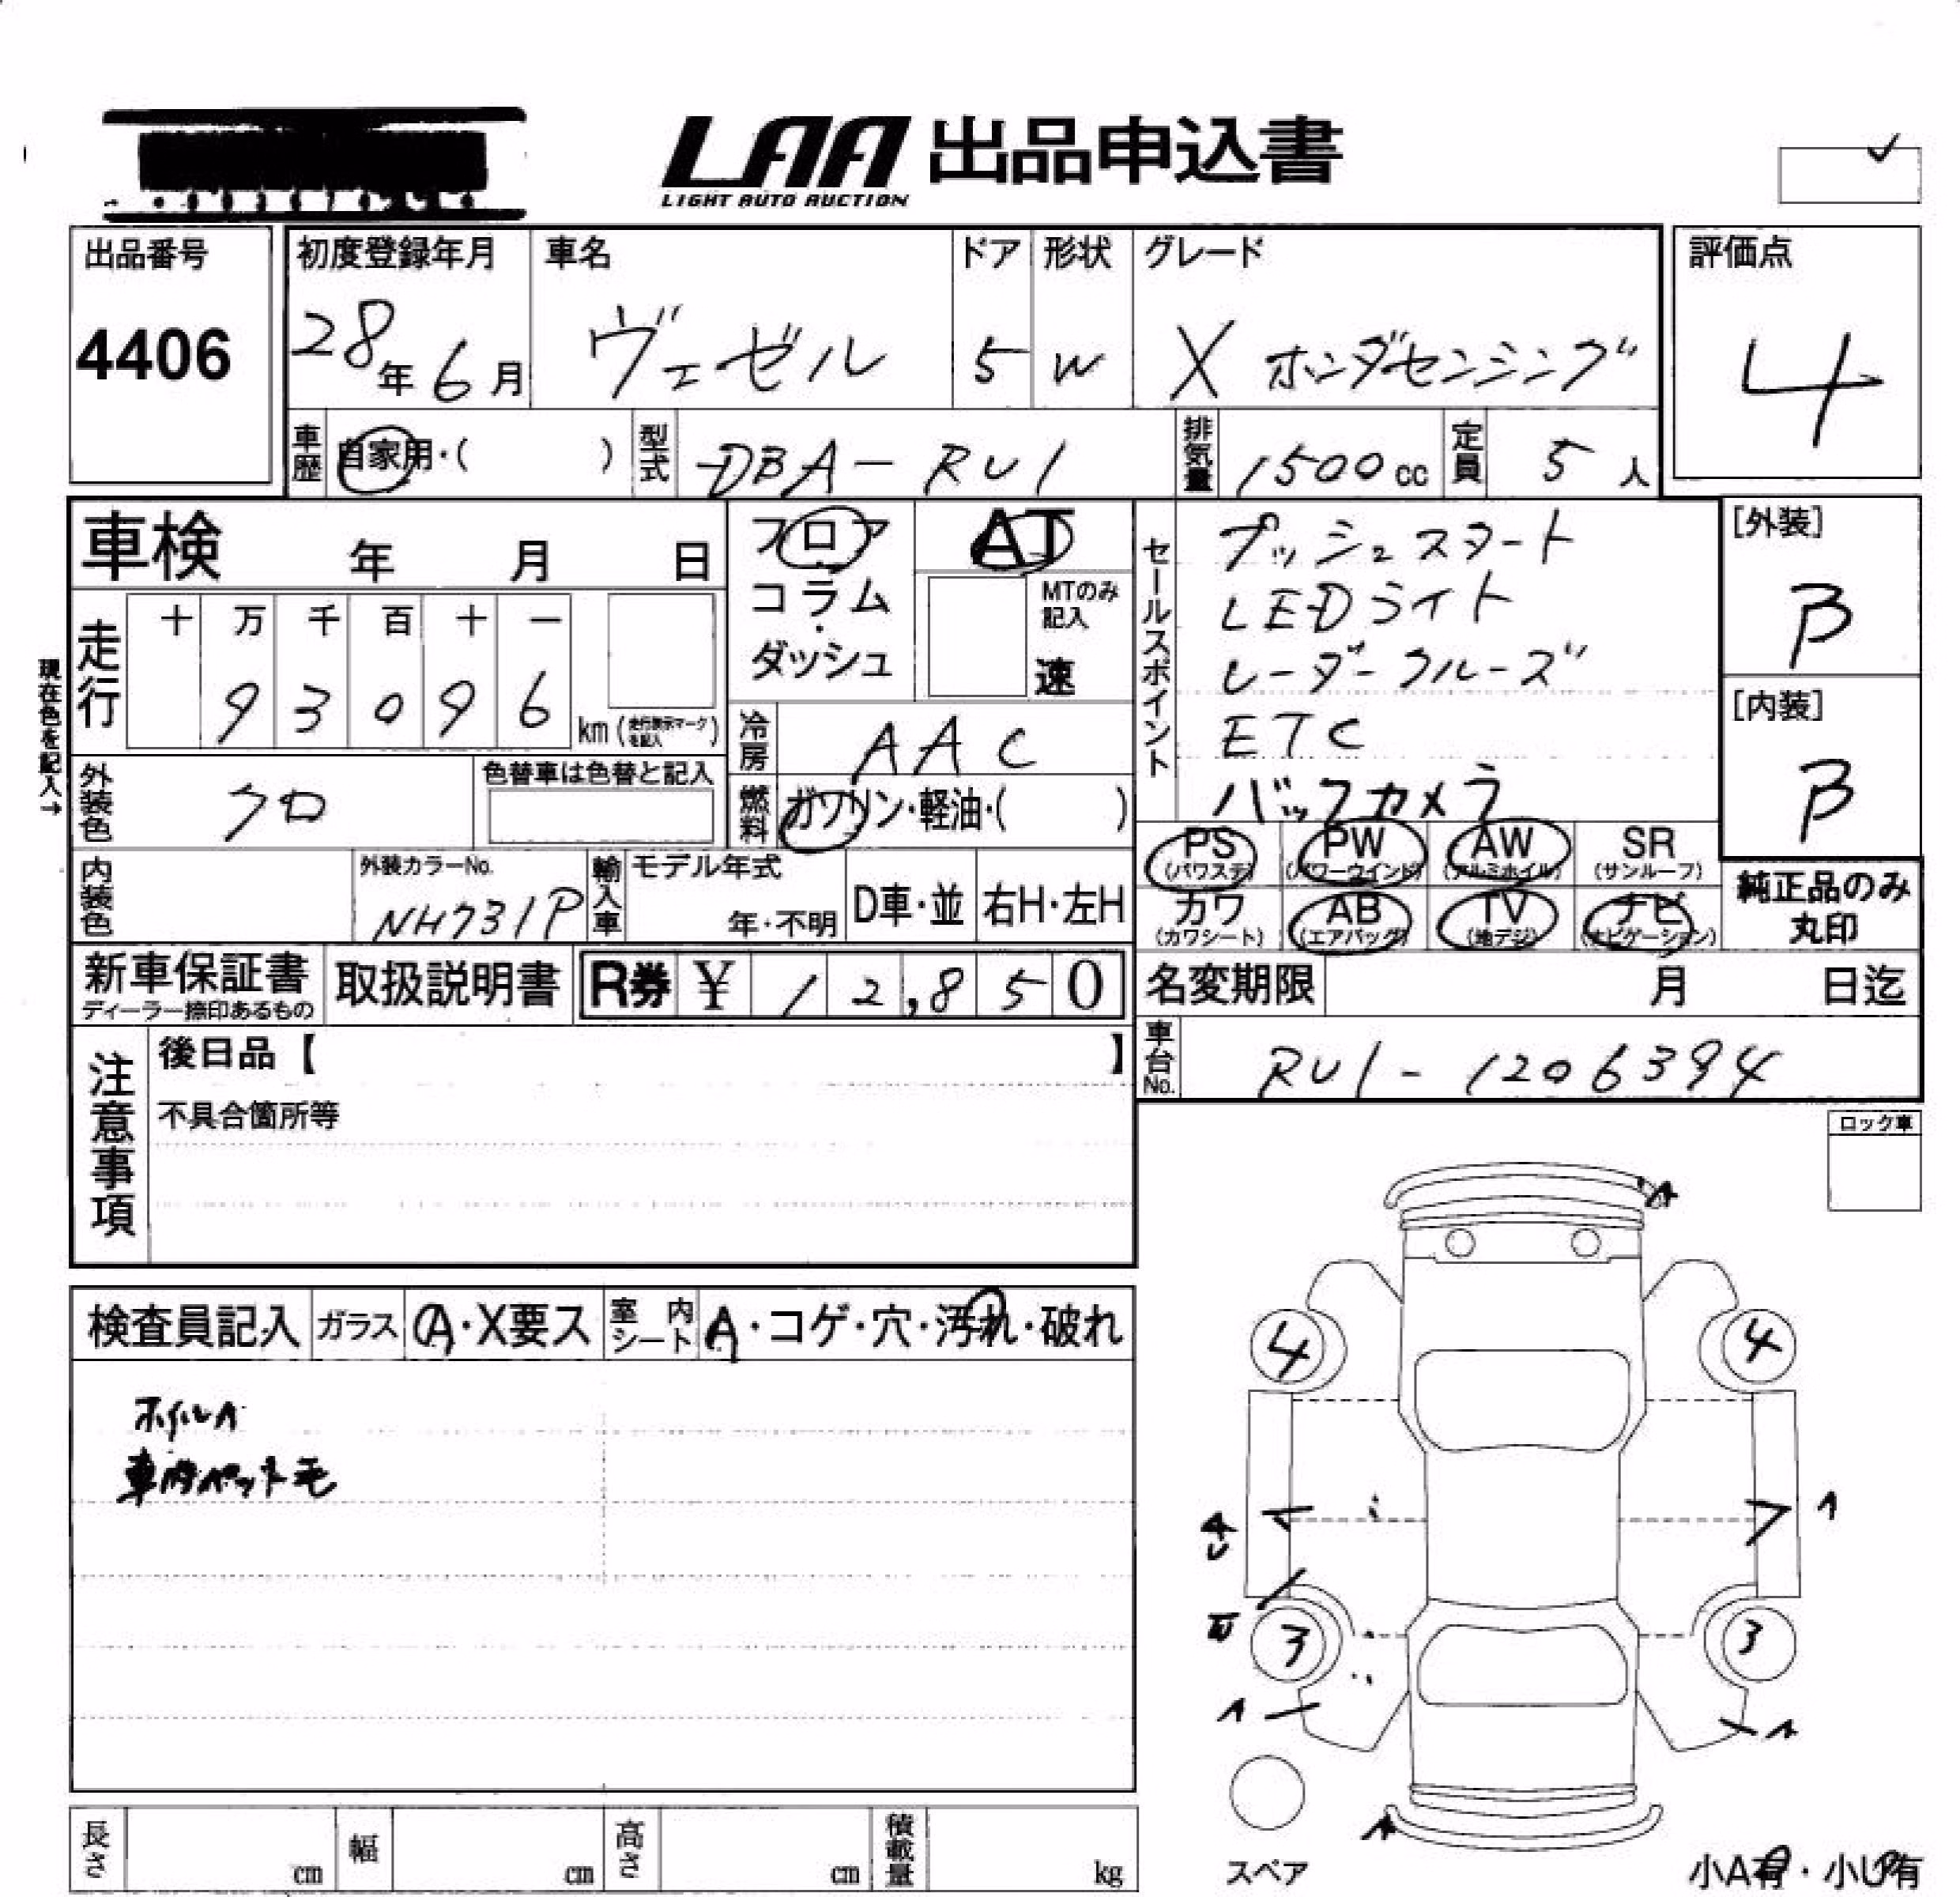 LAA 出品申込書
LIGHT AUTO AUCTION
出品番号
4406
初度登録年月
28年6月
車名
ヴェゼル
ドア
5
形状
W
グレード
X ホンダセンシング
評価点
4
車歴
自家用・( )
型式
DBA-RU1
排気量
1500cc
定員
5人
車検 年 月 日
フロア
・
コラム
・
ダッシュ
AT
MTのみ記入
速
走行
十 万 千 百 十 一
9 3 0 9 6
km(走行表示マークを記入)
現在色を記入→
冷房
AAC
外装色
クロ
色替車は色替と記入
燃料
ガソリン・軽油・( )
内装色
外装カラーNo.
NH731P
輸入車
モデル年式
年・不明
D車・並
右H・左H
新車保証書
ディーラー捺印あるもの
取扱説明書
R券 ¥ 12,850
セールスポイント
プッシュスタート
LEDライト
レーダークルーズ
ETC
バックカメラ
[外装]
B
[内装]
B
PS
(パワステ)
PW
(パワーウインド)
AW
(アルミホイル)
SR
(サンルーフ)
カワ
(カワシート)
AB
(エアバッグ)
TV
(地デジ)
ナビ
(ナビゲーション)
純正品のみ
丸印
名変期限 月 日迄
車台No.
RU1-1206394
注意事項
後日品【 】
不具合箇所等
ロック車
検査員記入
ガラス
A・X要ス
室内
シート
A・コゲ・穴・汚れ・破れ
ホイルA
車内ペット毛
A
4
4
A
3
3
A
A
A
スペア
小A有・小U有
長さ cm
幅 cm
高さ cm
積載量 kg